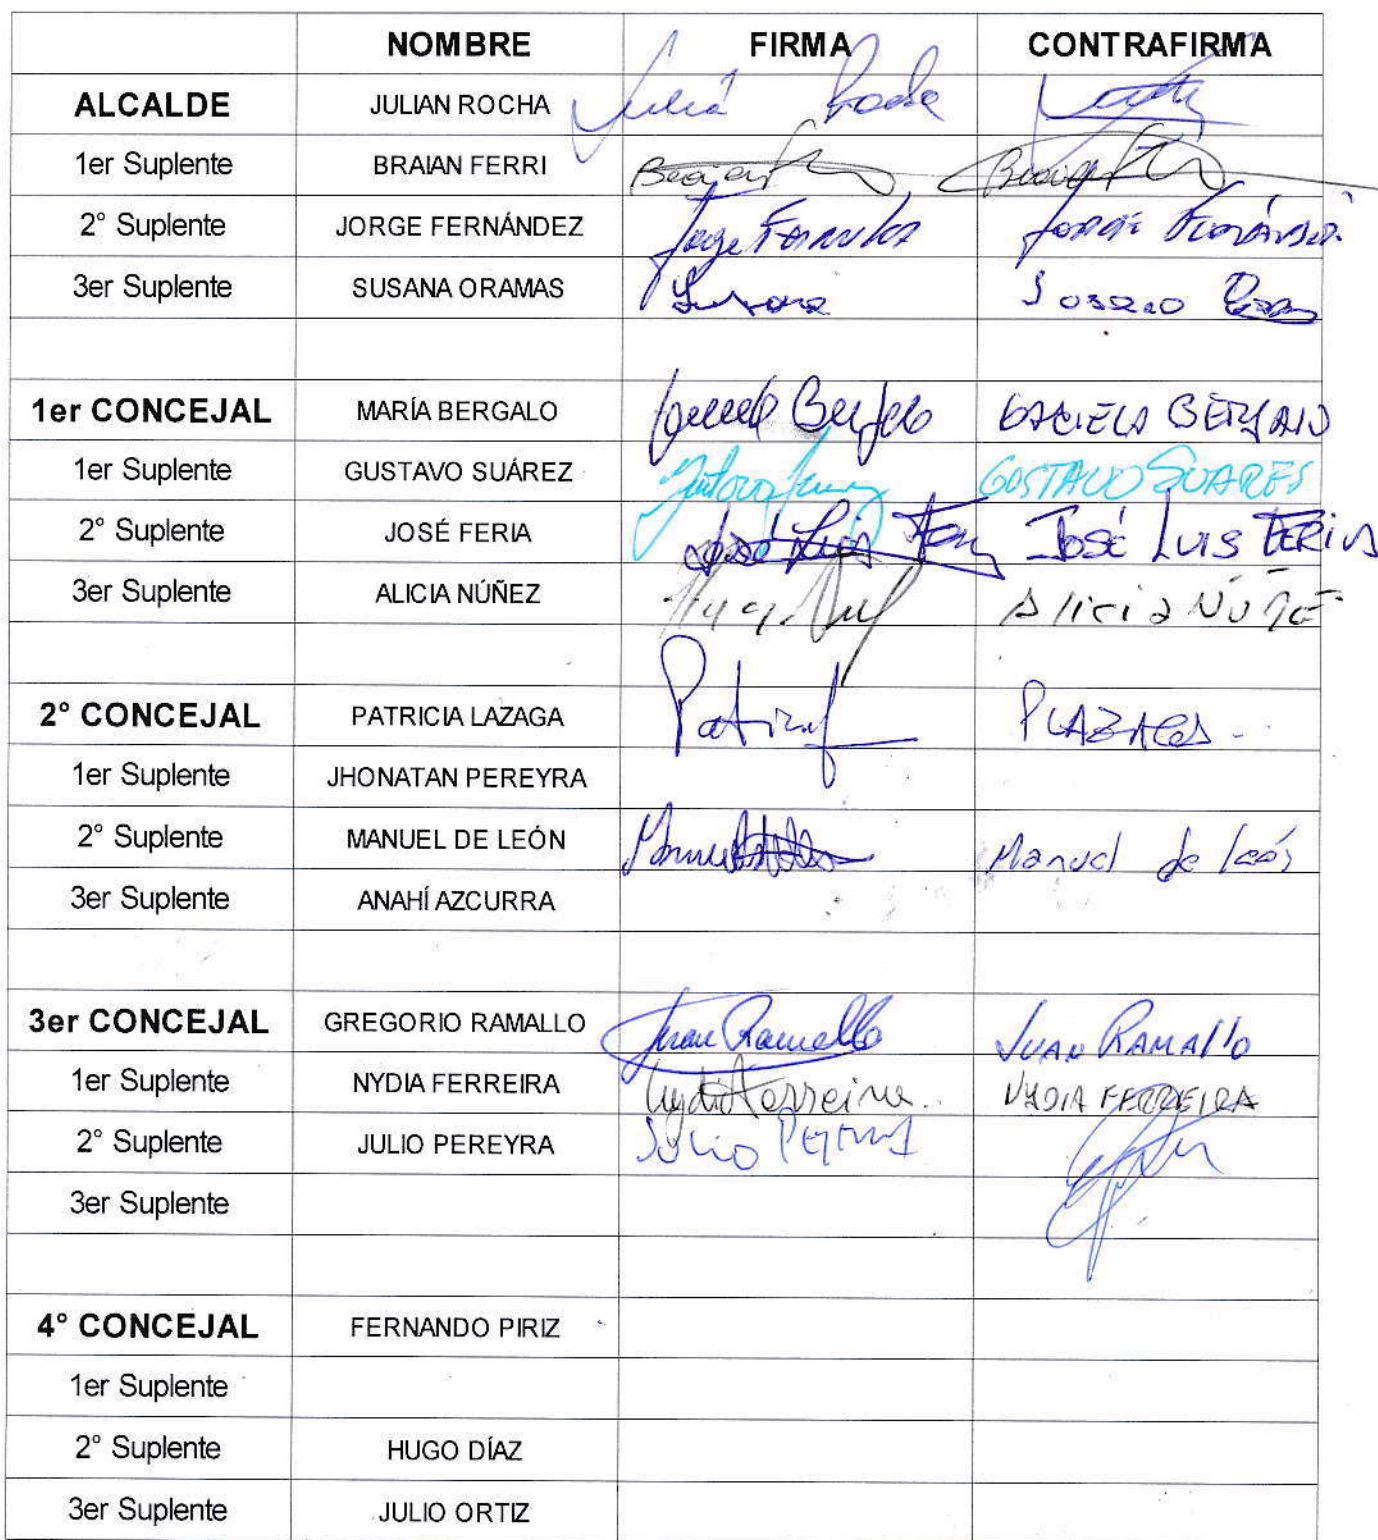 NOMBRE FIRMA CONTRAFIRMA
ALCALDE JULIAN ROCHA Juliá Rocha
1er Suplente BRAIAN FERRI Braian
2° Suplente JORGE FERNÁNDEZ Jorge Fernandez JORGE FERNÁNDEZ
3er Suplente SUSANA ORAMAS Susana Susana
1er CONCEJAL MARÍA BERGALO Bergalo GRACIELA BERGALO
1er Suplente GUSTAVO SUÁREZ Gustavo GUSTAVO SUARES
2° Suplente JOSÉ FERIA José Luis José Luis FERIA
3er Suplente ALICIA NÚÑEZ Alicia
2° CONCEJAL PATRICIA LAZAGA PLAZAGA.
1er Suplente JHONATAN PEREYRA
2° Suplente MANUEL DE LEÓN Manuel de león
3er Suplente ANAHÍ AZCURRA
3er CONCEJAL GREGORIO RAMALLO Juan Ramallo JUAN RAMALLO
1er Suplente NYDIA FERREIRA Nydia Ferreira NYDIA FERREIRA
2° Suplente JULIO PEREYRA Julio
3er Suplente
4° CONCEJAL FERNANDO PIRIZ
1er Suplente
2° Suplente HUGO DÍAZ
3er Suplente JULIO ORTIZ